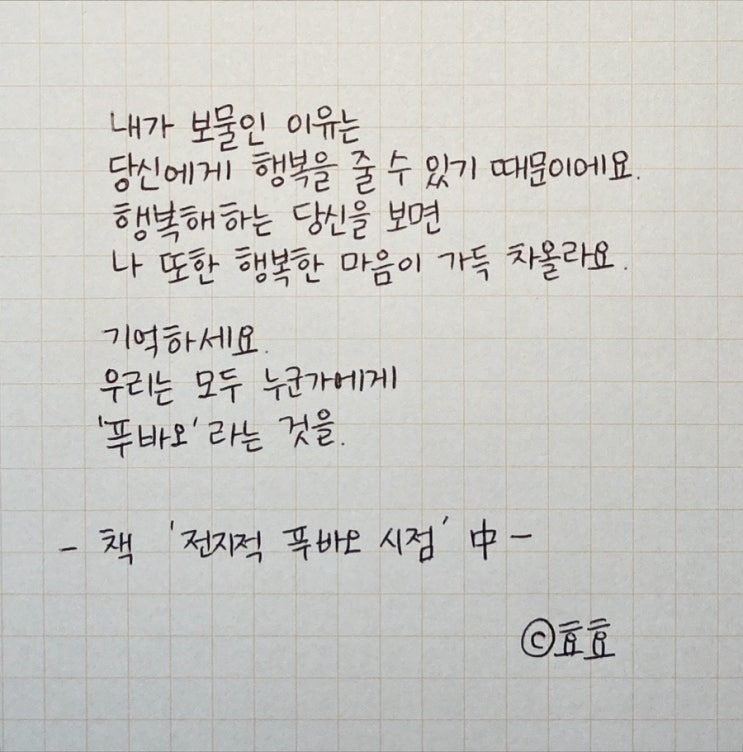 내가 보물인 이유는
당신에게 행복을 줄 수 있기 때문이에요.
행복해하는 당신을 보면
나 또한 행복한 마음이 가득 차올라요.
기억하세요.
우리는 모두 누군가에게
'푸바오'라는 것을.
- 책 '전지적 푸바오 시점' 中 -
ⓒ효효